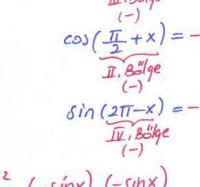 (-)
cos(π/2 + x) = -
II. Bölge
(-)
sin(2π-x) = -
IV. Bölge
(-)
2 (-sinx) (-sinx)